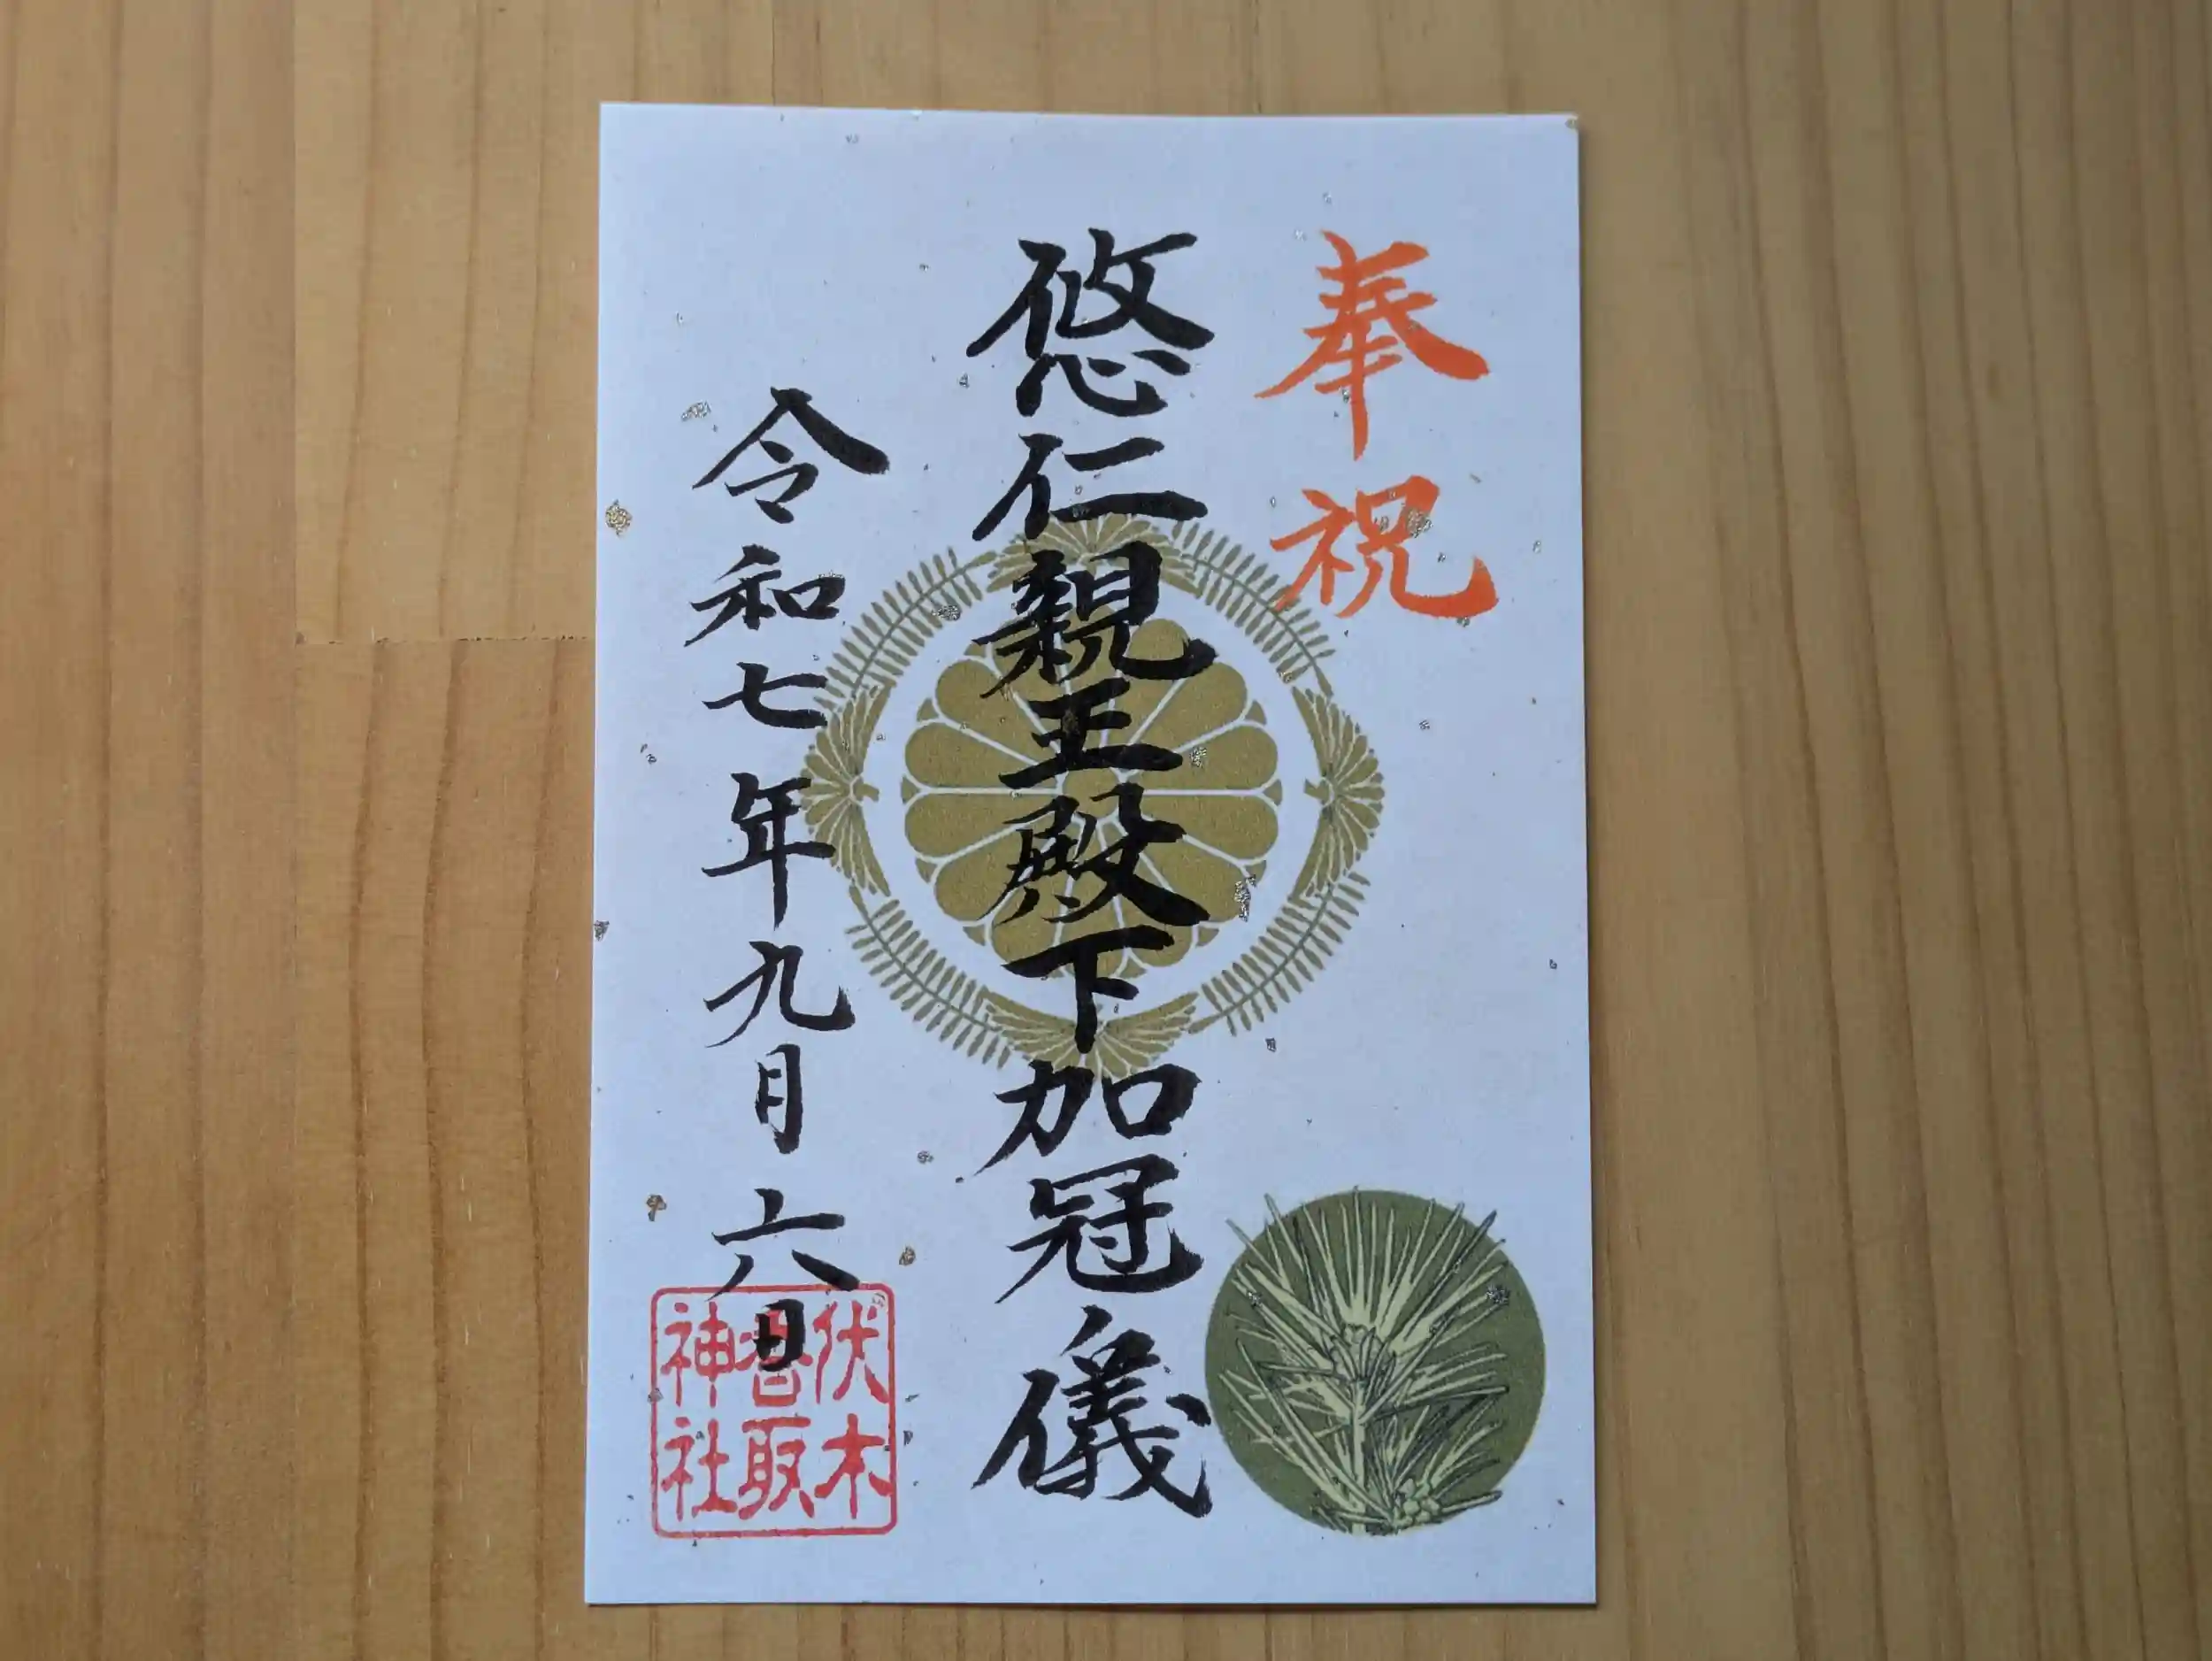 奉祝
悠仁親王殿下加冠儀
令和七年九月六日
伏木
香取
神社